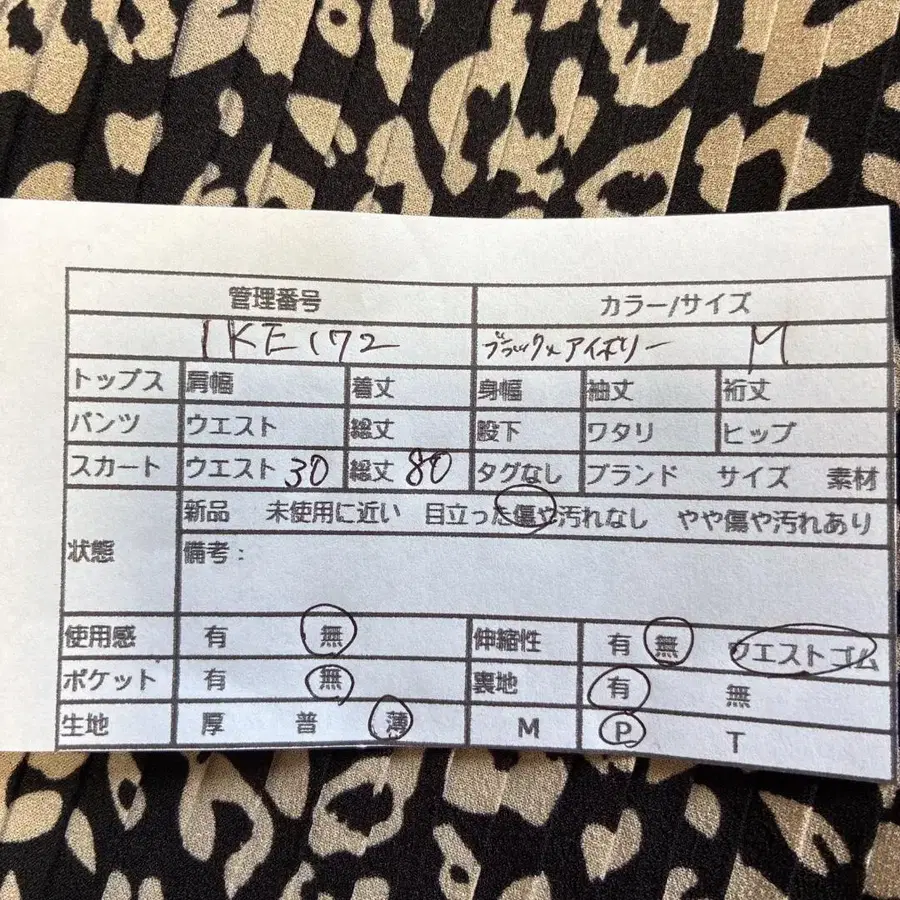 管理番号 カラー/サイズ
IKE172 ブラック×アイボリー M
トップス 肩幅 着丈 身幅 袖丈 裄丈
パンツ ウエスト 総丈 股下 ワタリ ヒップ
スカート ウエスト 30 総丈 80 タグなし ブランド サイズ 素材
状態 新品 未使用に近い 目立った傷や汚れなし やや傷や汚れあり
備考：
使用感 有 無 伸縮性 有 無 ウエストゴム
ポケット 有 無 裏地 有 無
生地 厚 普 薄 M P T